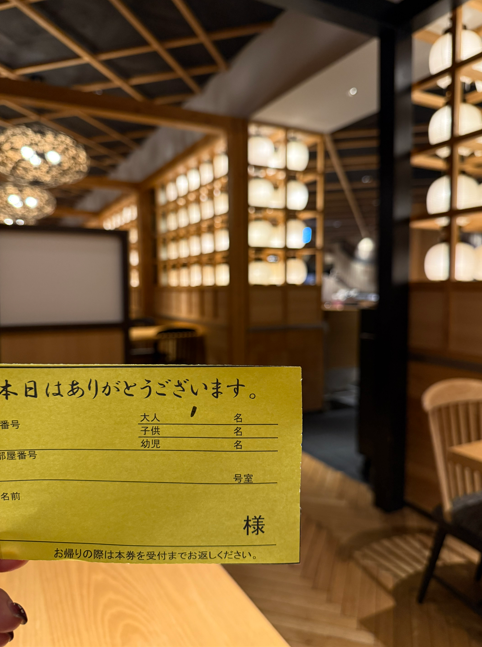 本日はありがとうございます。
番号 大人 ′ 名
子供 名
幼児 名
部屋番号
号室
名前
様
お帰りの際は本券を受付までお返しください。